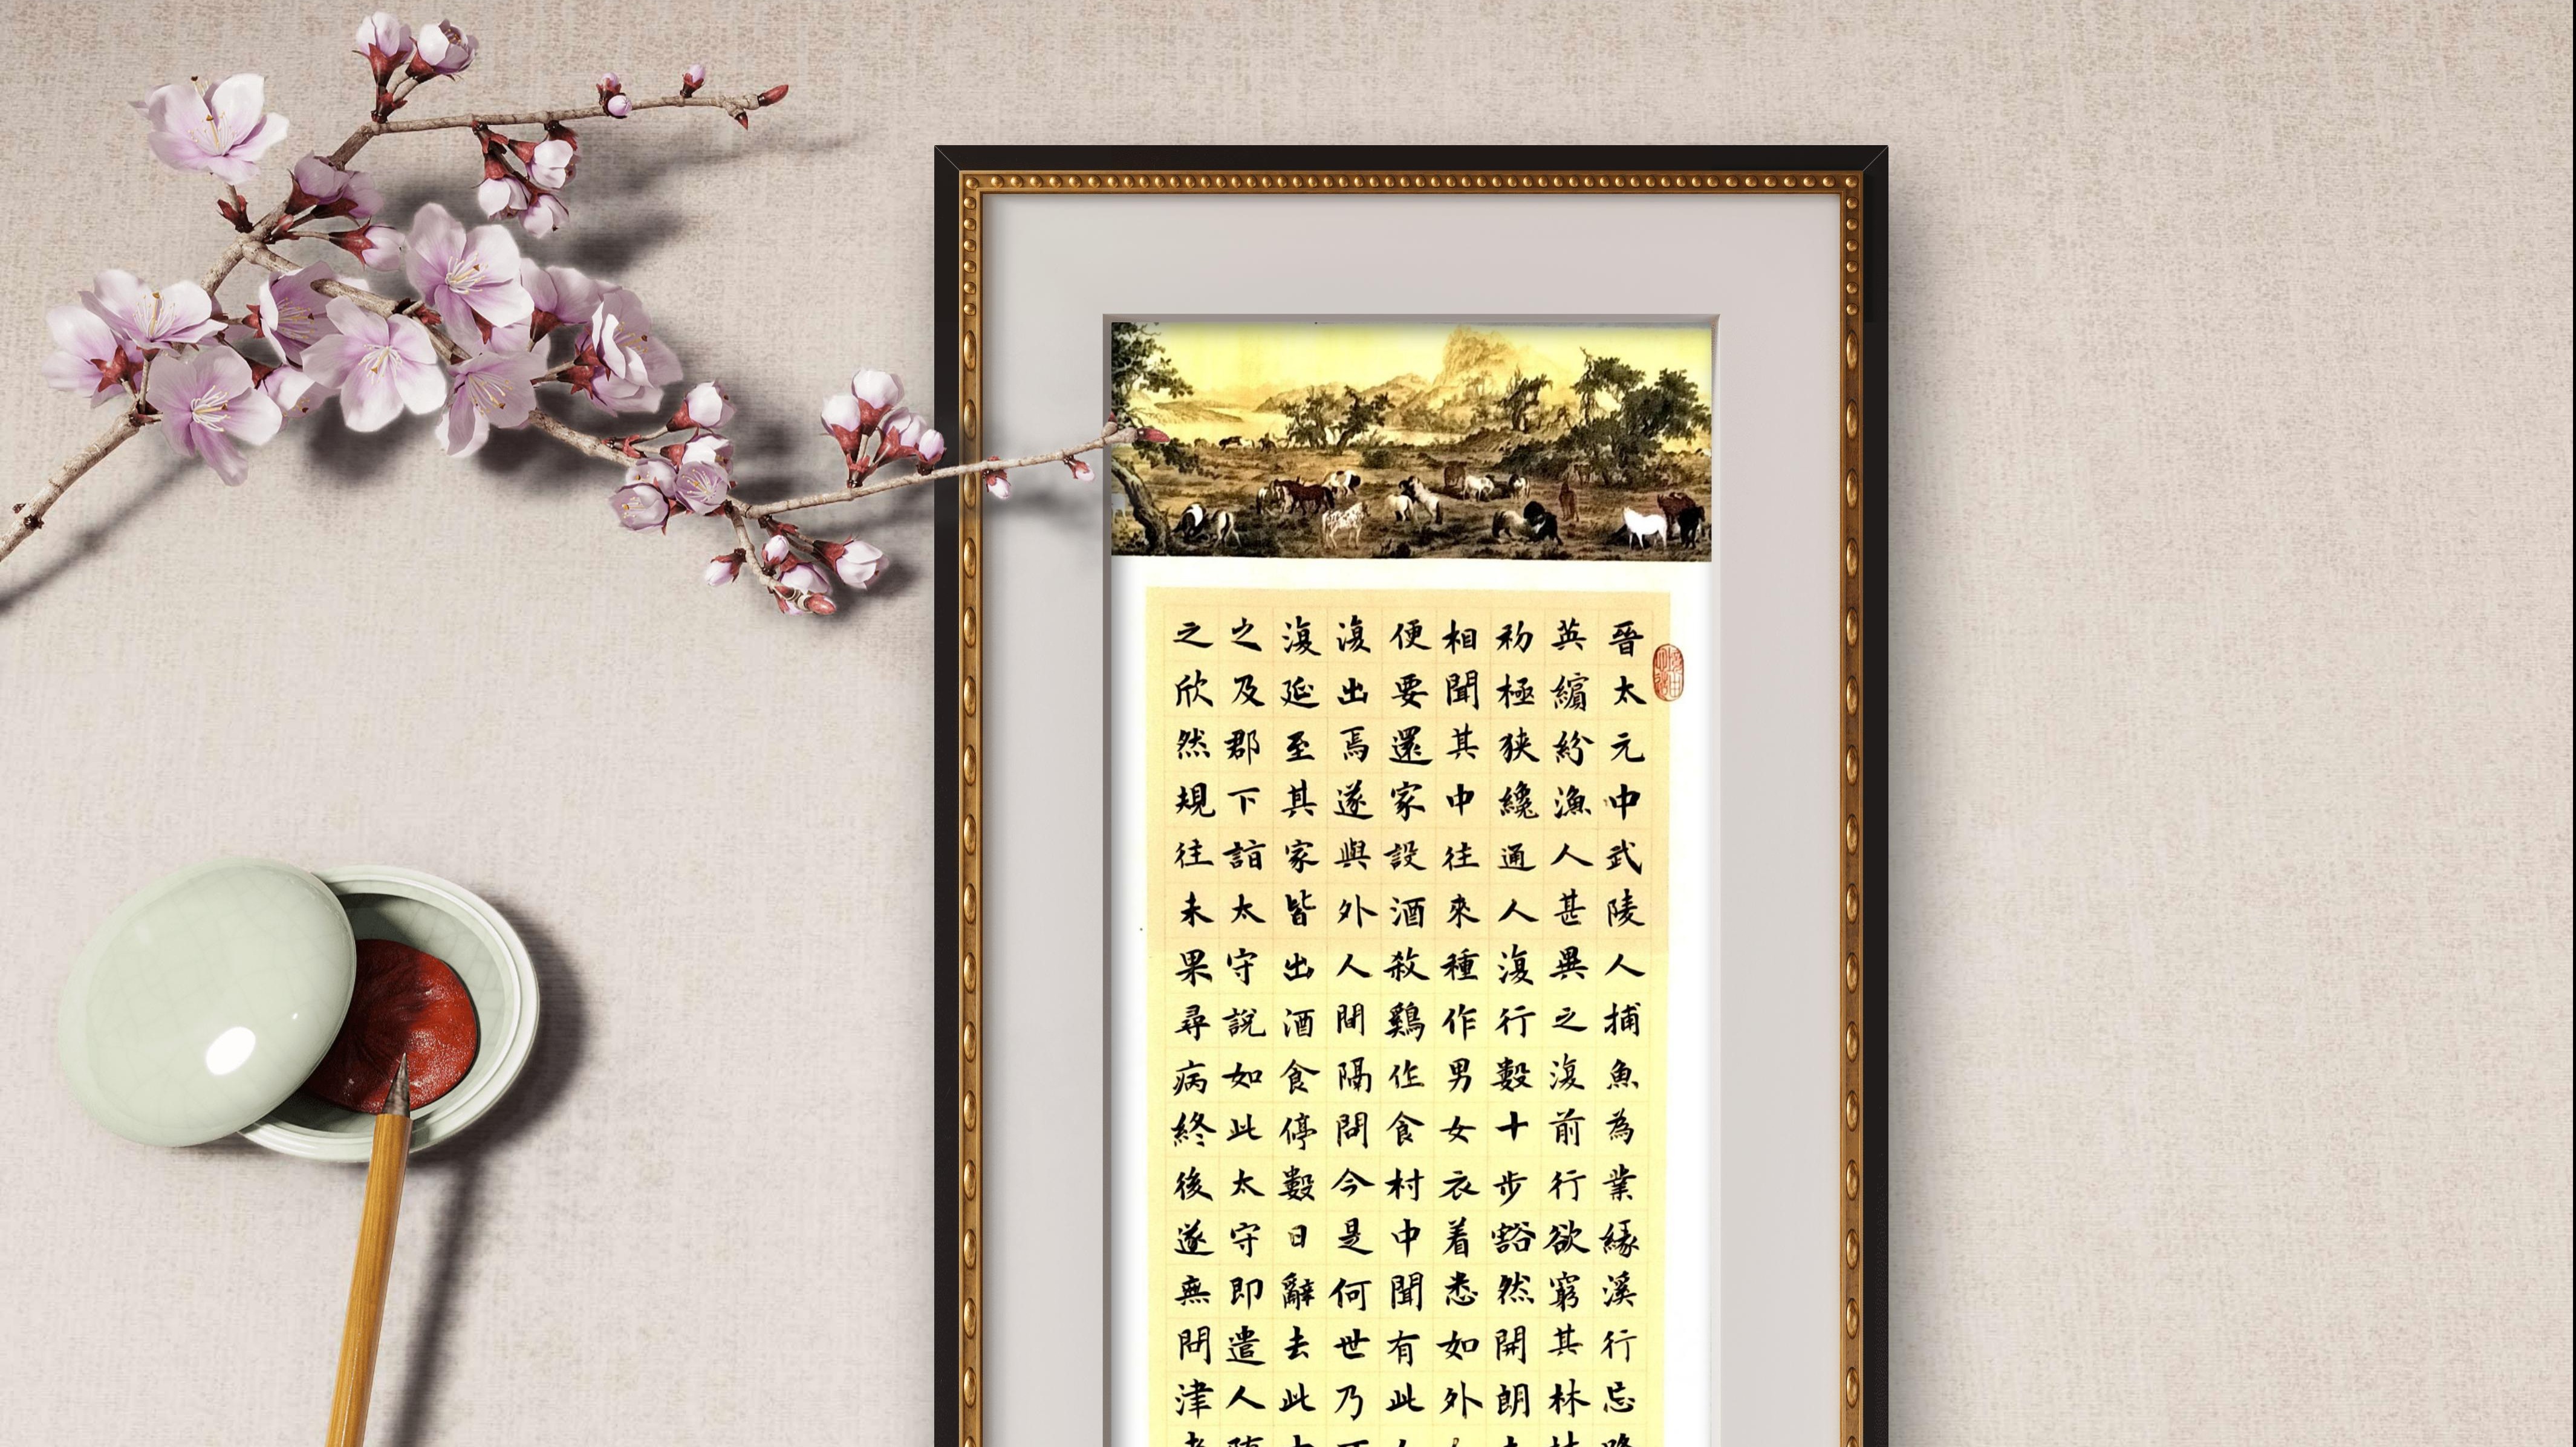 晉太元中武陵人捕魚為業緣溪行忘路
英繽紛漁人甚異之復前行欲窮其林林
初極狹纔通人復行數十步豁然開朗土
相聞其中往來種作男女衣着悉如外人
便要還家設酒殺鷄作食村中聞有此人
復出焉遂與外人間隔問今是何世乃不
復延至其家皆出酒食停數日辭去此中
之及郡下詣太守說如此太守即遣人隨
之欣然規往未果尋病終後遂無問津者